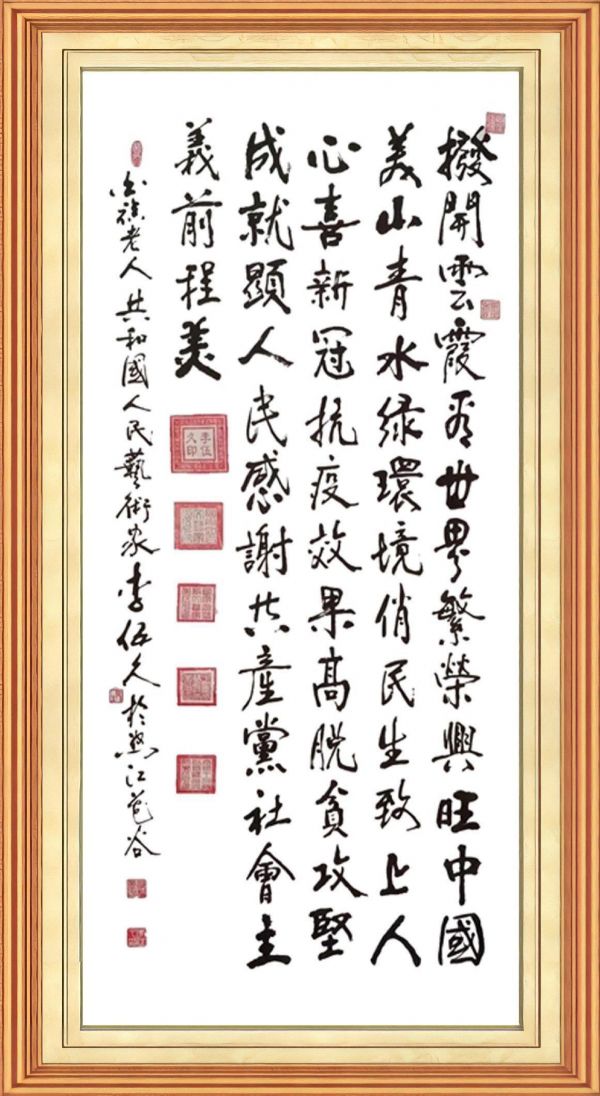 撥開雲霞看世界繁榮興旺中國
美山青水绿環境俏民生致上人
心喜新冠抗疫效果高脱貧攻堅
成就顯人民感謝共產黨社會主
義前程美
老人共和國人民藝術家李伍久於怒江谷
李伍久印